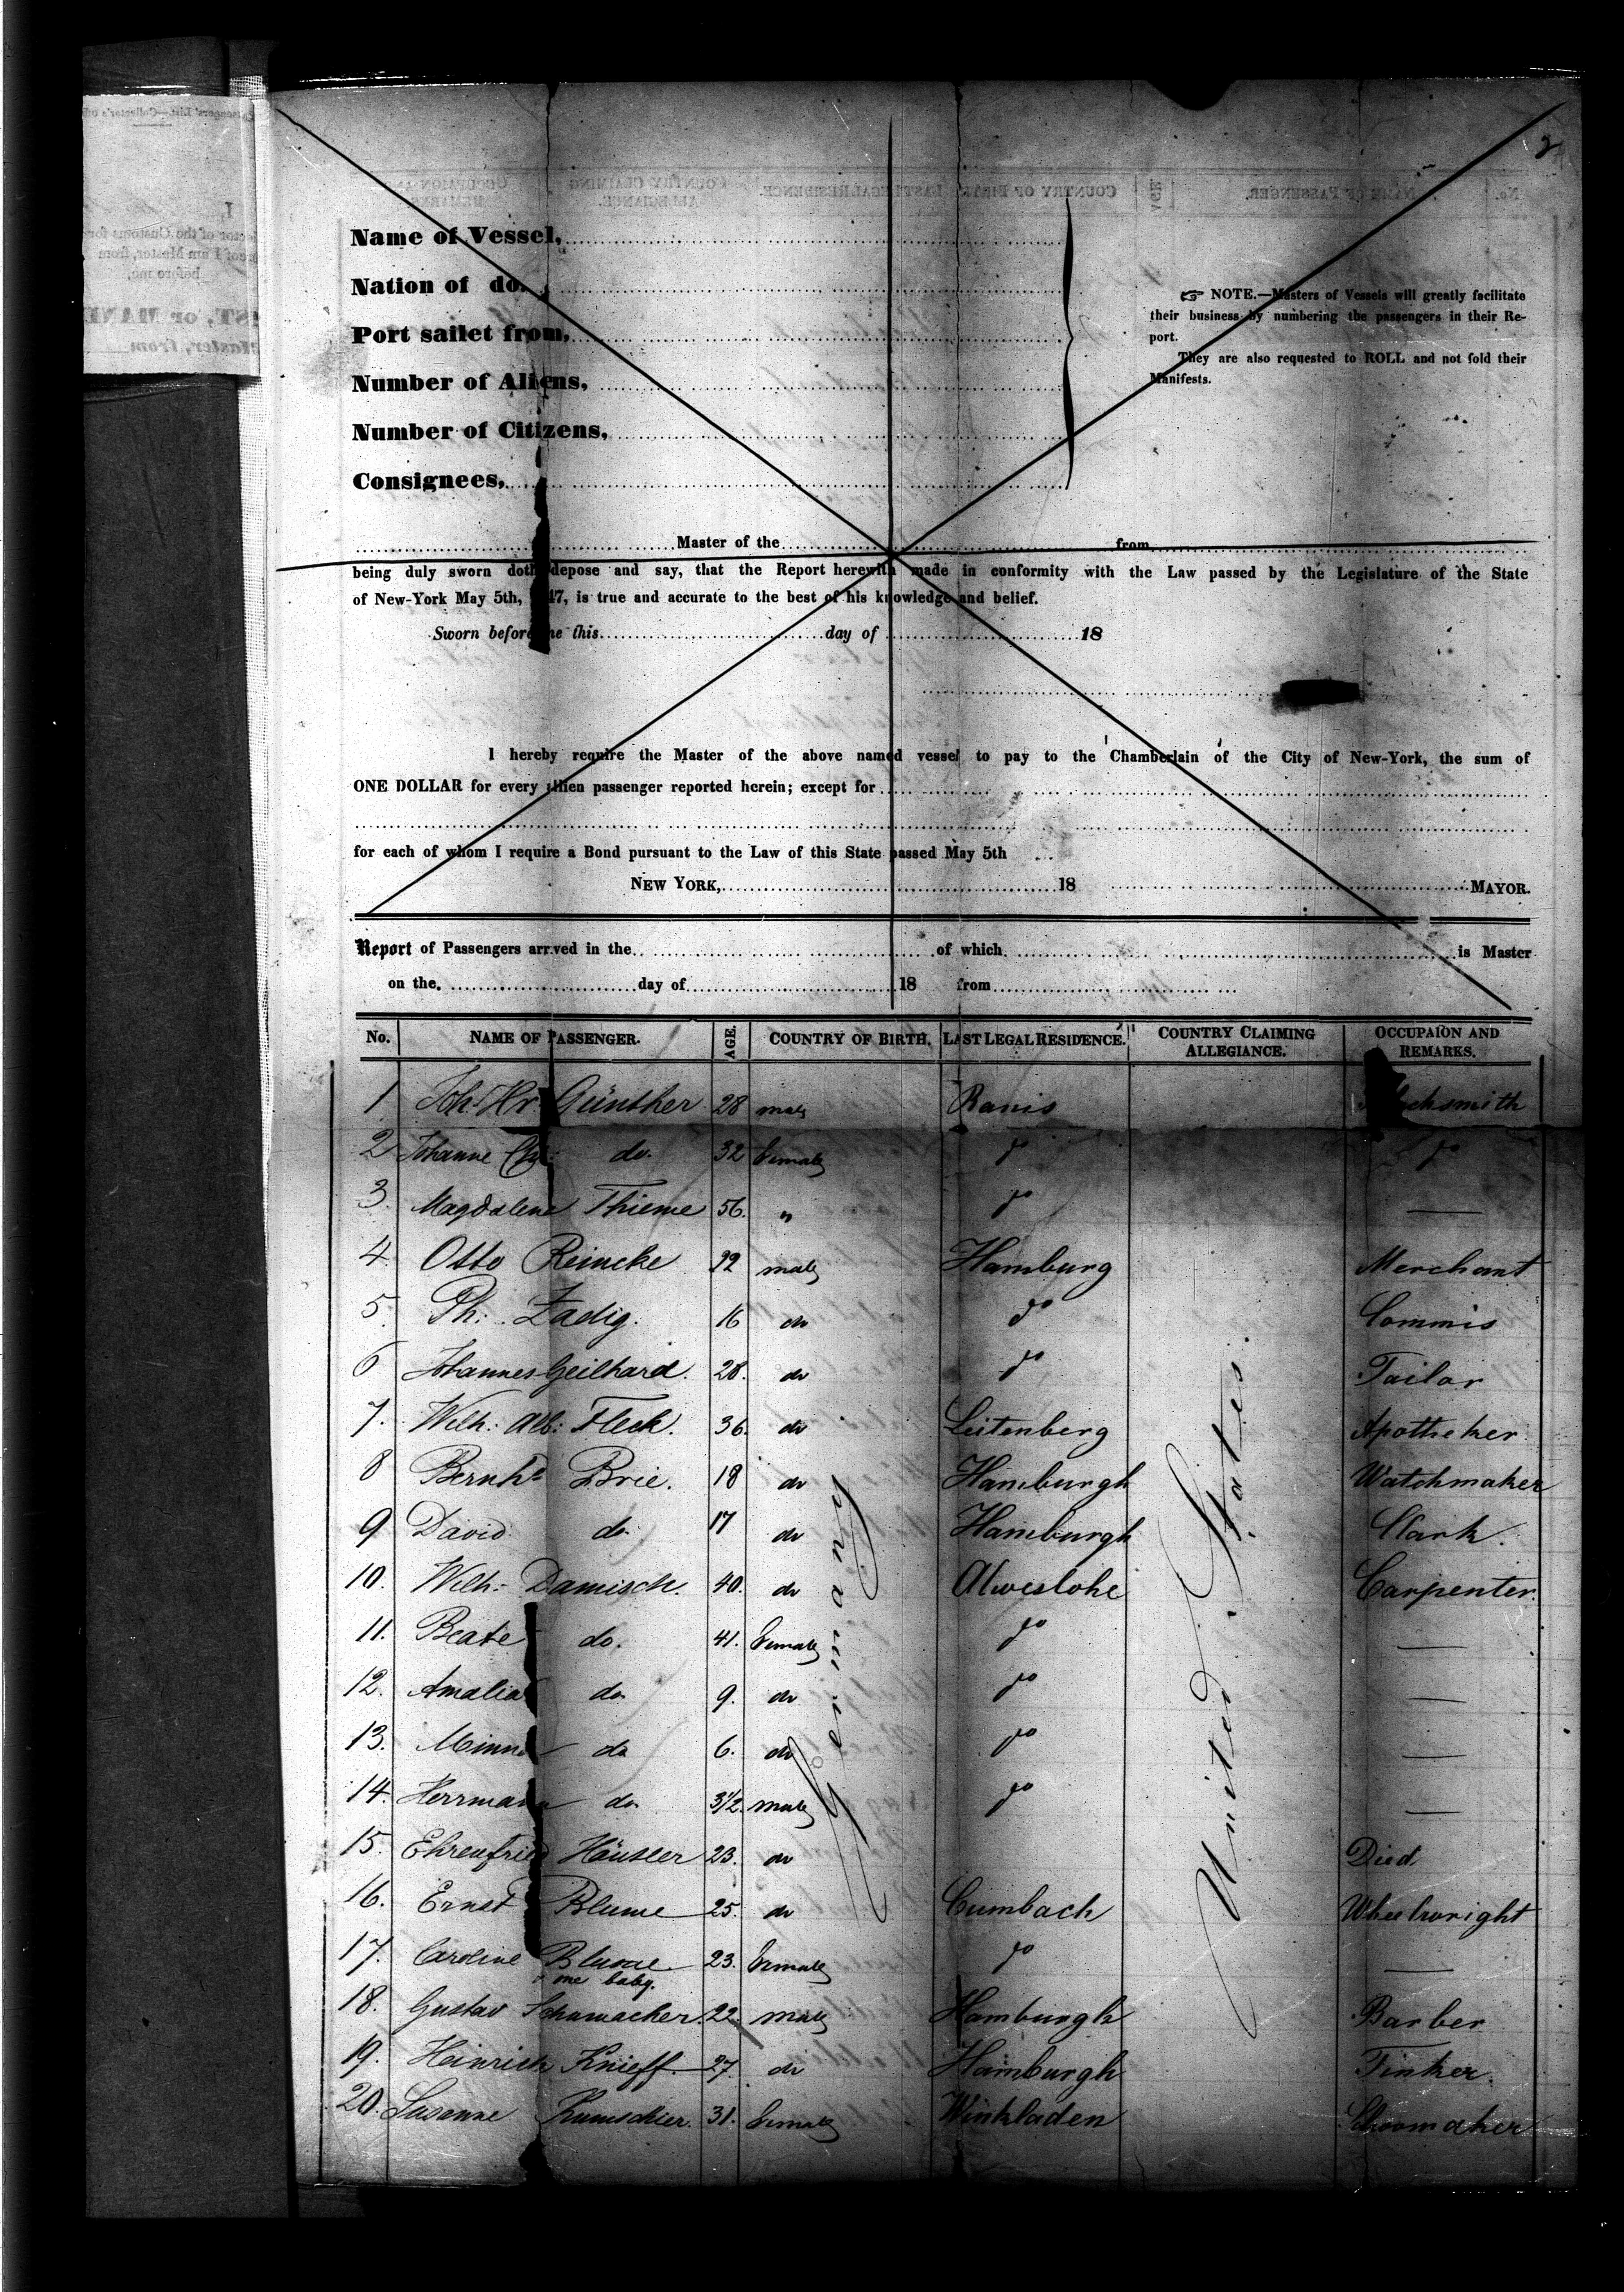 2
Name of Vessel,
Nation of do.
Port sailet from,
Number of Aliens,
Number of Citizens,
Consignees,
☞ NOTE.—Masters of Vessels will greatly facilitate
their business by numbering the passengers in their Re-
port.
They are also requested to ROLL and not fold their
Manifests.
Master of the from
being duly sworn doth depose and say, that the Report herewith made in conformity with the Law passed by the Legislature of the State
of New-York May 5th, 47, is true and accurate to the best of his knowledge and belief.
Sworn before me this day of 18
I hereby require the Master of the above named vessel to pay to the Chamberlain of the City of New-York, the sum of
ONE DOLLAR for every alien passenger reported herein; except for
for each of whom I require a Bond pursuant to the Law of this State passed May 5th
NEW YORK, 18 MAYOR.
Report of Passengers arrived in the of which is Master
on the. day of 18 from
No. NAME OF PASSENGER. AGE. COUNTRY OF BIRTH. LAST LEGAL RESIDENCE. COUNTRY CLAIMING ALLEGIANCE. OCCUPAION AND REMARKS.
Germany
United States.
1 Joh: Hr: Günther 28 male Ranis
2 Johanne do. 32 female do do
3. Magdalene Thieme 56. " do —
4. Otto Reincke 22 male Hamburg Merchant
5. Ph: Zadig. 16 do do Commis
6 Johannes Geilhard. 28. do do Tailor
7. Wilh: Alb: Fleck. 36. do Leitenberg Apotheker
8 Bernhd Brie. 18 do Hamburgh Watchmaker
9 David do. 17 do Hamburgh Clark.
10. Wilh: Damisch. 40. do Alveslohe Carpenter.
11. Beate do. 41. female do —
12. Amalia do. 9. do do —
13. Minna do 6. do do —
14. Herrmann do. 3½. male do —
15. Ehrenfried Häusler 23. do Died.
16. Ernst Blume 25. do Cumbach Wheelwright
17. Caroline Blume 23. female do —
& one baby.
18. Gustav Schumacher. 22. male Hamburgh Barber
19. Heinrich Knieff. 27. do Hamburgh Tinker.
20. Susanne 31. female Winkladen Schoomaker